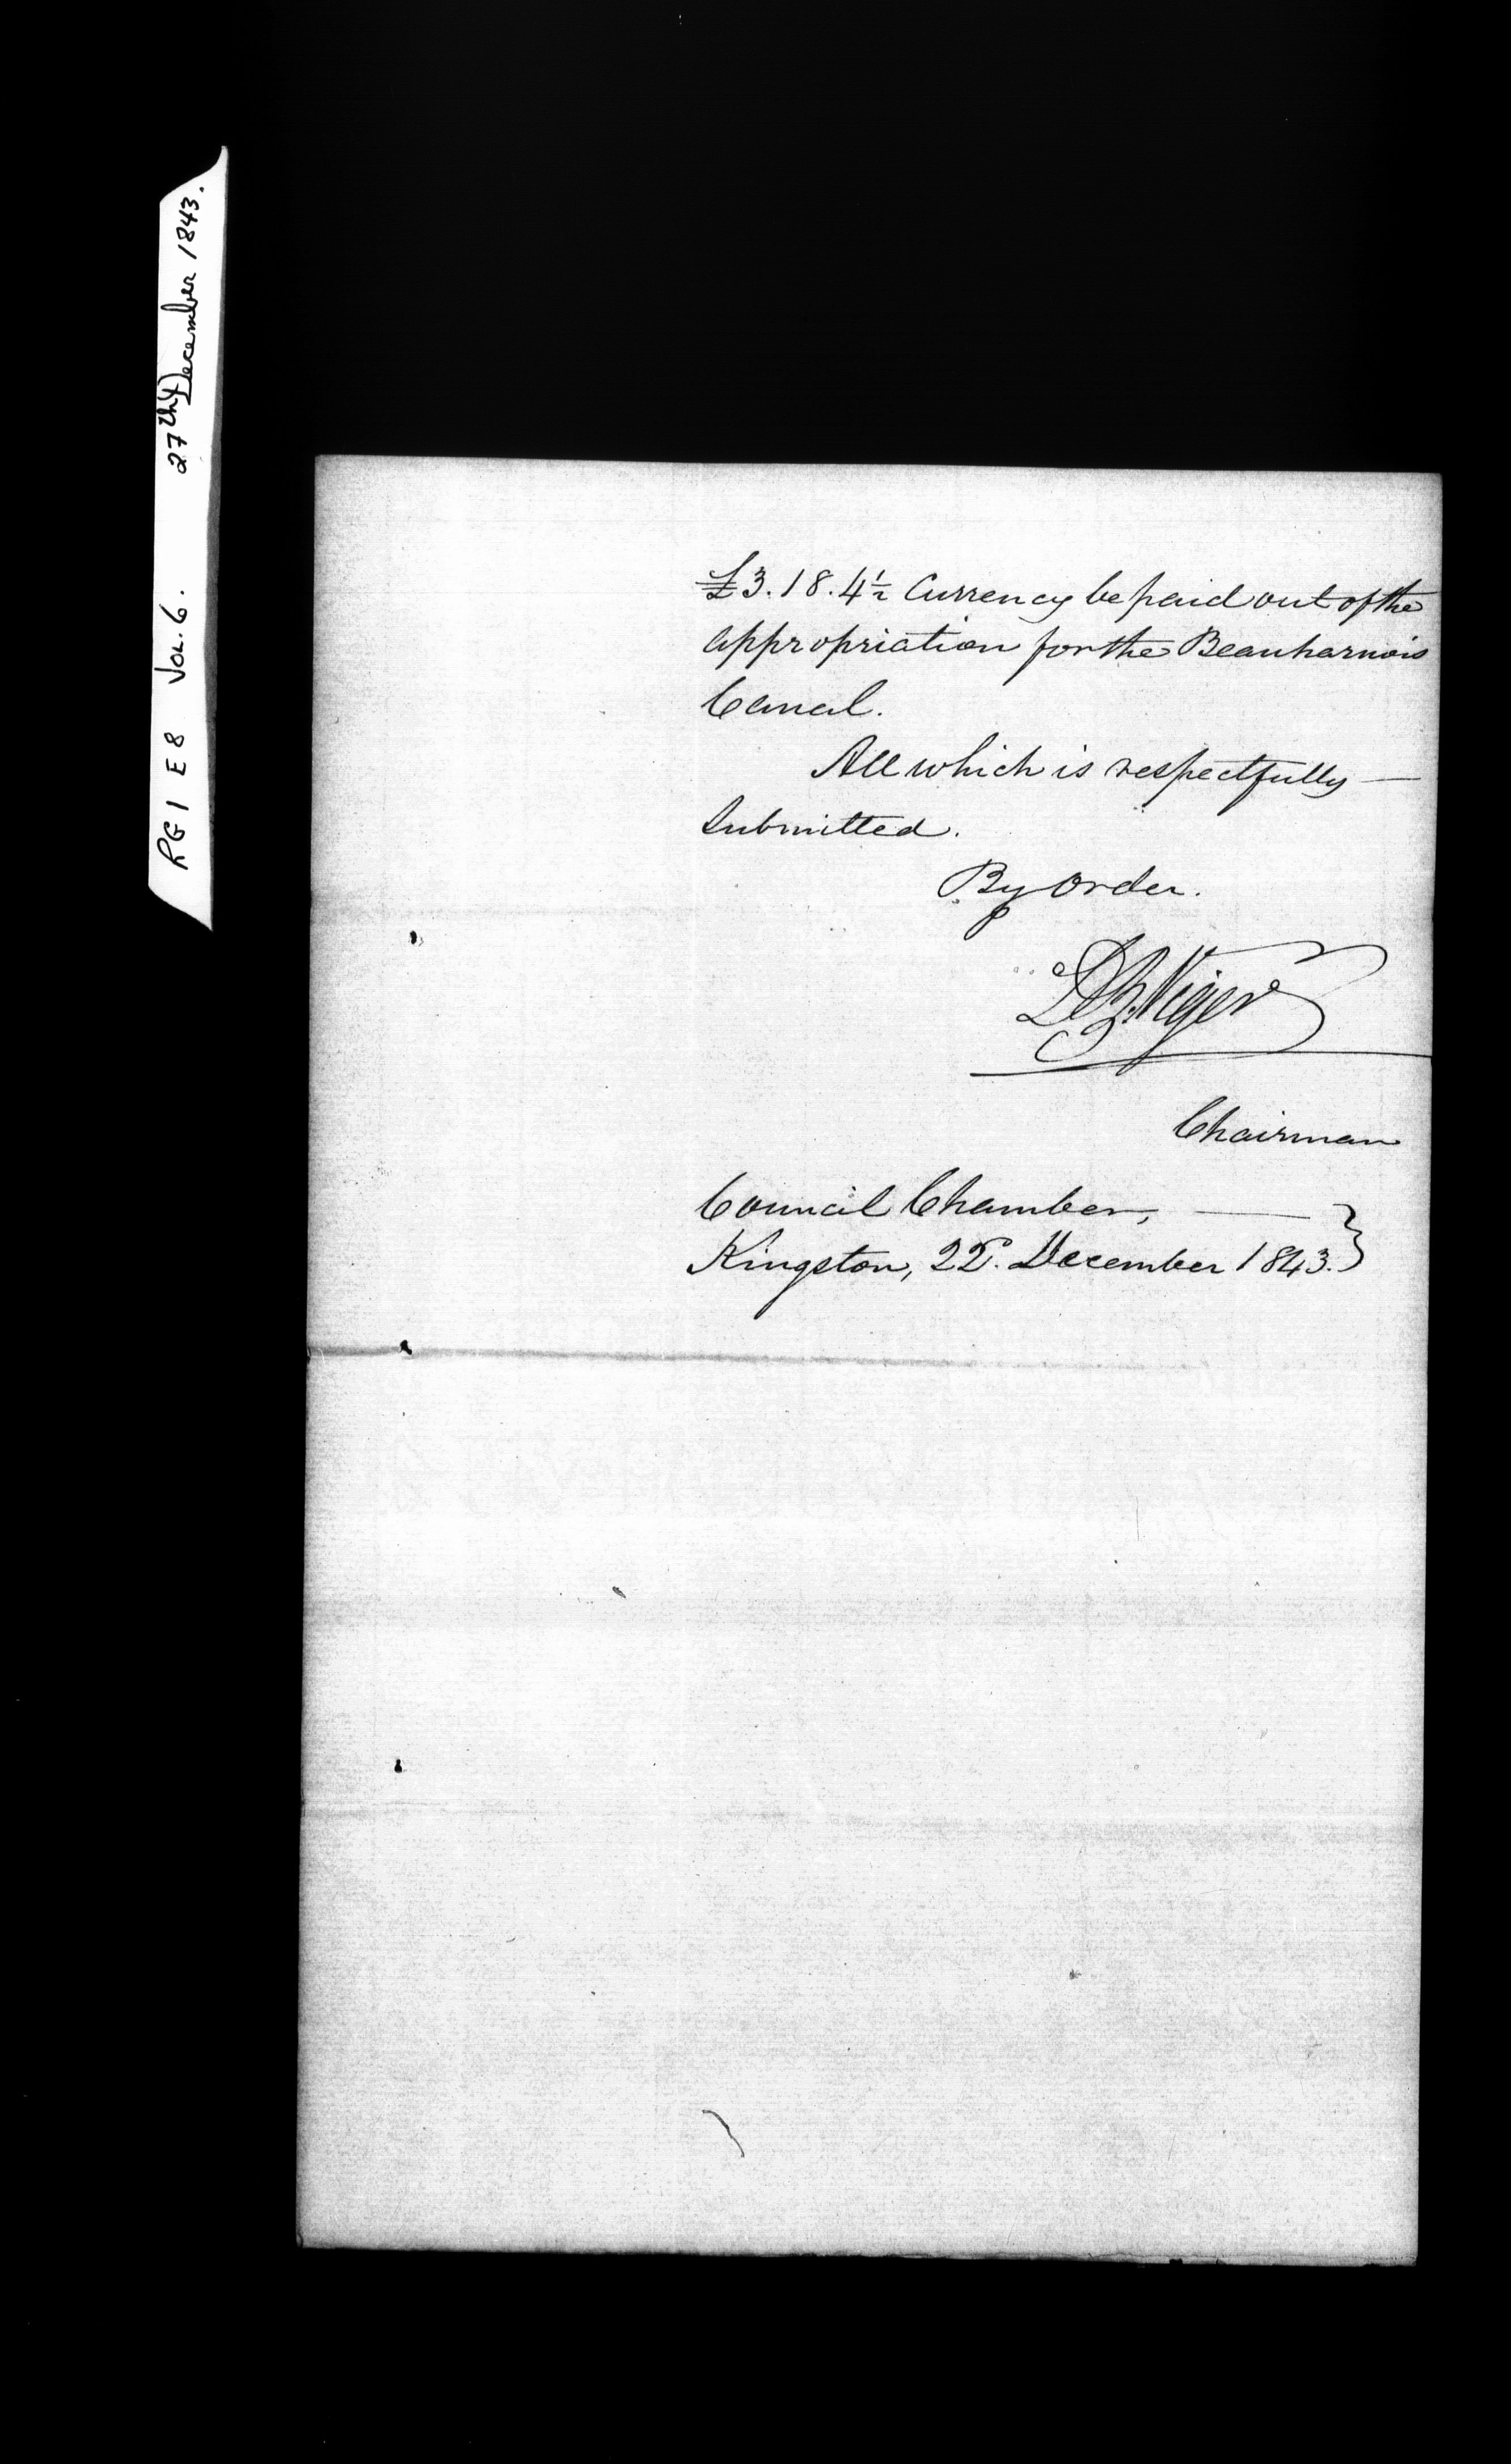 RG 1 E 8 Vol. 6. 27th December 1843.
£3.18.4½ Currency be paid out of the
appropriation for the Beauharnois
Canal.
All which is respectfully —
Submitted.
By Order.
D. B. Viger
Chairman
Council Chamber, — }
Kingston, 22d. December 1843. }